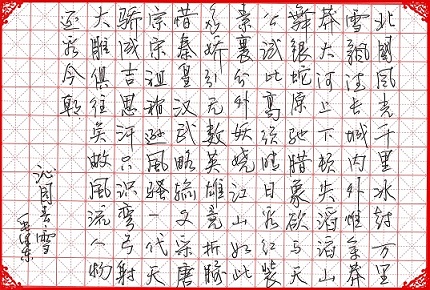 北國風光千里冰封万里
雪飘望长城内外惟余莽
莽大河上下顿失滔滔山
舞银蛇原驰腊象欲与天
公试比高须晴日看红装
素裹分外妖娆江山如此
多娇引无数英雄竞折腰
惜秦皇汉武略输文采唐
宗宋祖稍逊风骚一代天
骄成吉思汗只识弯弓射
大雕俱往矣数风流人物
还看今朝
沁园春雪
毛泽东